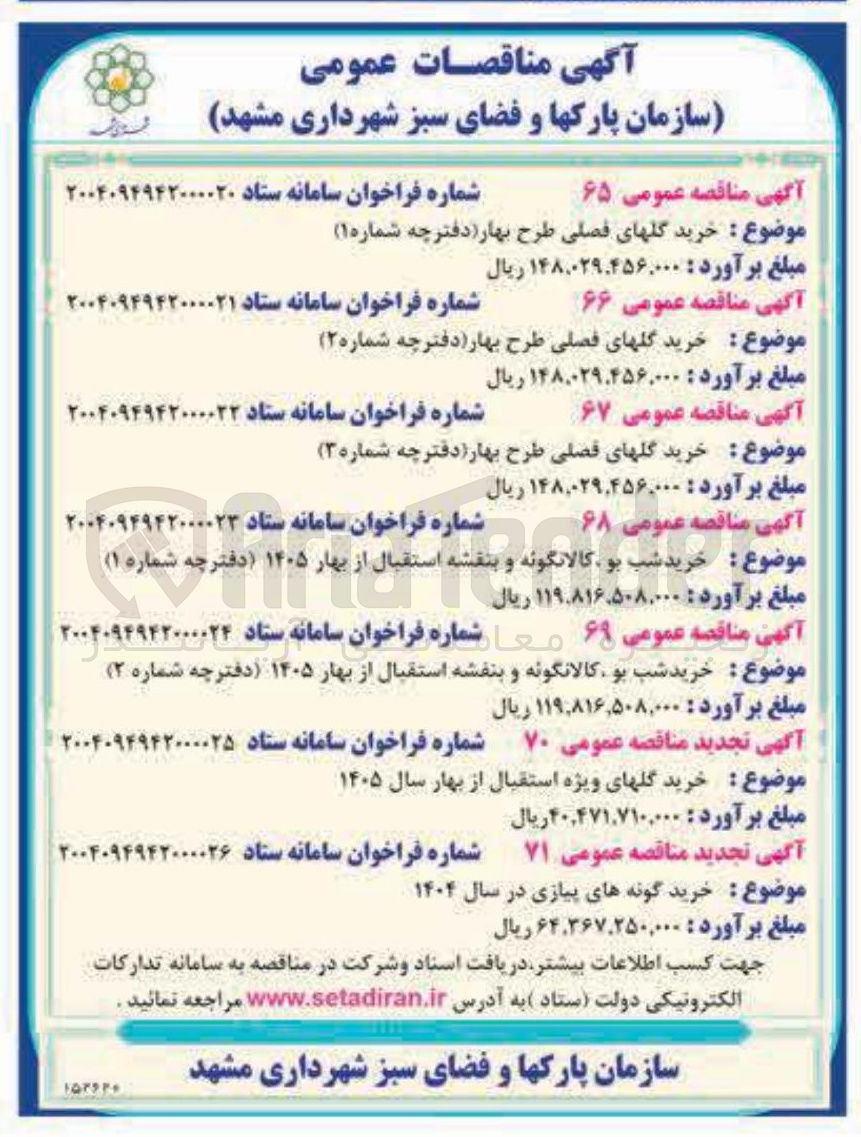 آگهی مناقصـات عمومی
(سازمان پارکها و فضای سبز شهرداری مشهد)
آگهی مناقصه عمومی ۶۵ شماره فراخوان سامانه ستاد ۲۰۰۴۰۹۴۹۴۲۰۰۰۰۲۰
موضوع : خرید گلهای فصلی طرح بهار(دفترچه شماره۱)
مبلغ برآورد : ۱۴۸,۰۲۹,۴۵۶,۰۰۰ ریال
آگهی مناقصه عمومی ۶۶ شماره فراخوان سامانه ستاد ۲۰۰۴۰۹۴۹۴۲۰۰۰۰۲۱
موضوع : خرید گلهای فصلی طرح بهار(دفترچه شماره۲)
مبلغ برآورد : ۱۴۸,۰۲۹,۴۵۶,۰۰۰ ریال
آگهی مناقصه عمومی ۶۷ شماره فراخوان سامانه ستاد ۲۰۰۴۰۹۴۹۴۲۰۰۰۰۲۲
موضوع : خرید گلهای فصلی طرح بهار(دفترچه شماره۳)
مبلغ برآورد : ۱۴۸,۰۲۹,۴۵۶,۰۰۰ ریال
آگهی مناقصه عمومی ۶۸ شماره فراخوان سامانه ستاد ۲۰۰۴۰۹۴۹۴۲۰۰۰۰۲۳
موضوع : خریدشب بو ،کالانکوئه و بنفشه استقبال از بهار ۱۴۰۵ (دفترچه شماره ۱)
مبلغ برآورد : ۱۱۹,۸۱۶,۵۰۸,۰۰۰ ریال
آگهی مناقصه عمومی ۶۹ شماره فراخوان سامانه ستاد ۲۰۰۴۰۹۴۹۴۲۰۰۰۰۲۴
موضوع : خریدشب بو ،کالانکوئه و بنفشه استقبال از بهار ۱۴۰۵ (دفترچه شماره ۲)
مبلغ برآورد : ۱۱۹,۸۱۶,۵۰۸,۰۰۰ ریال
آگهی تجدید مناقصه عمومی ۷۰ شماره فراخوان سامانه ستاد ۲۰۰۴۰۹۴۹۴۲۰۰۰۰۲۵
موضوع : خرید گلهای ویژه استقبال از بهار سال ۱۴۰۵
مبلغ برآورد : ۴۰,۴۷۱,۷۱۰,۰۰۰ریال
آگهی تجدید مناقصه عمومی ۷۱ شماره فراخوان سامانه ستاد ۲۰۰۴۰۹۴۹۴۲۰۰۰۰۲۶
موضوع : خرید گونه های پیازی در سال ۱۴۰۴
مبلغ برآورد : ۶۴,۳۶۷,۲۵۰,۰۰۰ ریال
جهت کسب اطلاعات بیشتر،دریافت اسناد وشرکت در مناقصه به سامانه تدارکات
الکترونیکی دولت (ستاد )به آدرس www.setadiran.ir مراجعه نمائید .
سازمان پارکها و فضای سبز شهرداری مشهد
AriaTender